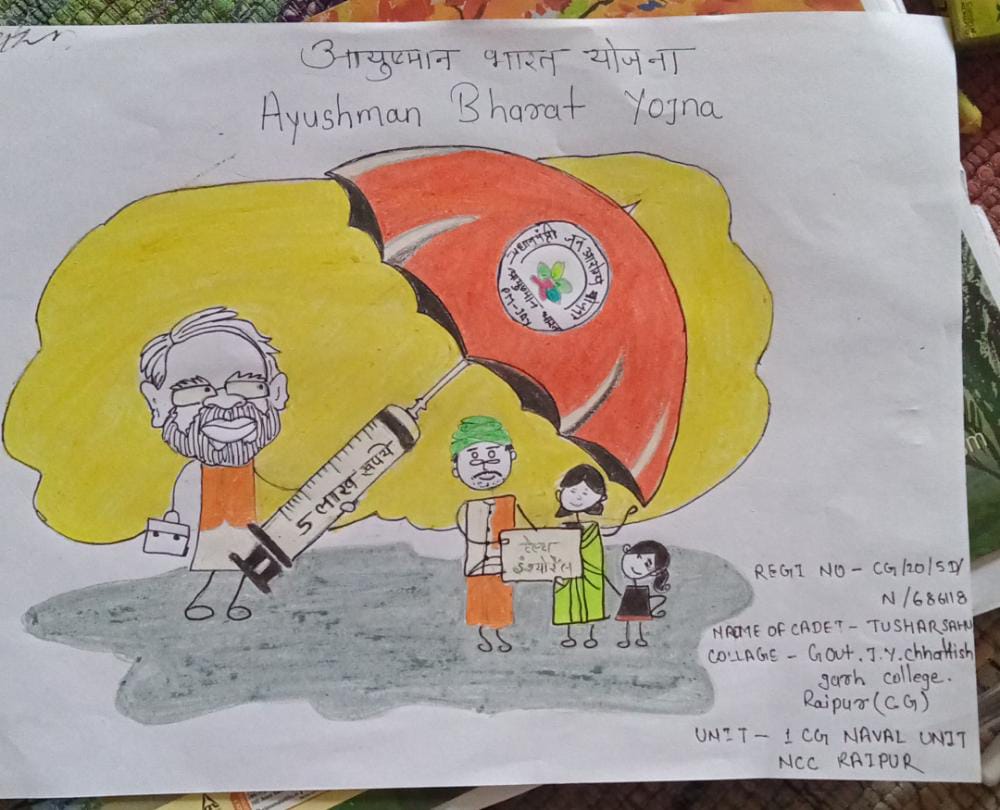 आयुष्मान भारत योजना
Ayushman Bharat Yojna
प्रधानमंत्री जन आरोग्य योजना
आयुष्मान भारत
PM-JAY
5 लाख रुपये
हेल्थ
इंश्योरेंस
REGI NO - CG/20/SD/
N/686118
NAME OF CADET - TUSHAR SAHU
COLLAGE - Govt. J.Y. chhattish
garh college.
Raipur (CG)
UNIT - 1 CG NAVAL UNIT
NCC RAIPUR